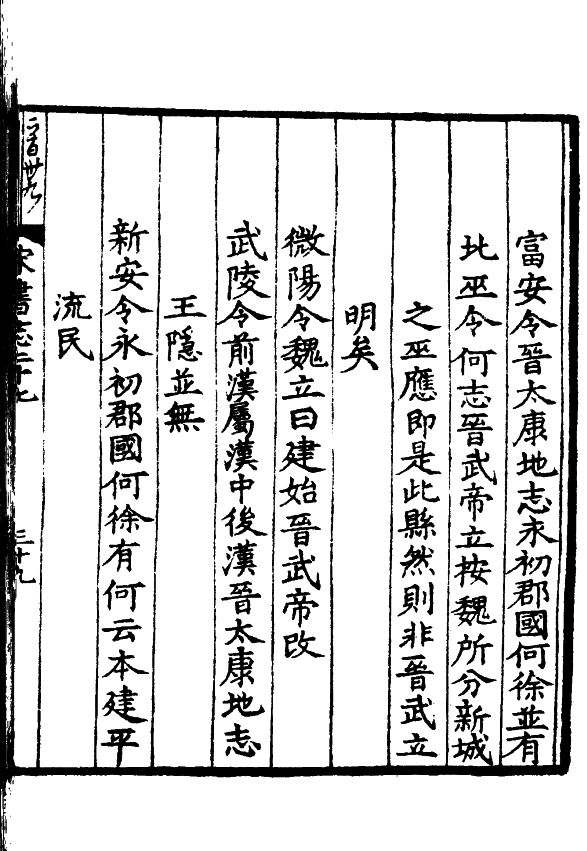 富安令晉太康地志永初郡國何徐並有
北巫令何志晉武帝立按魏所分新城
之巫應即是此縣然則非晉武立
明矣
微陽令魏立曰建始晉武帝改
武陵令前漢屬漢中後漢晉太康地志
王隱並無
新安令永初郡國何徐有何云本建平
流民
宋書志二十七
三十九